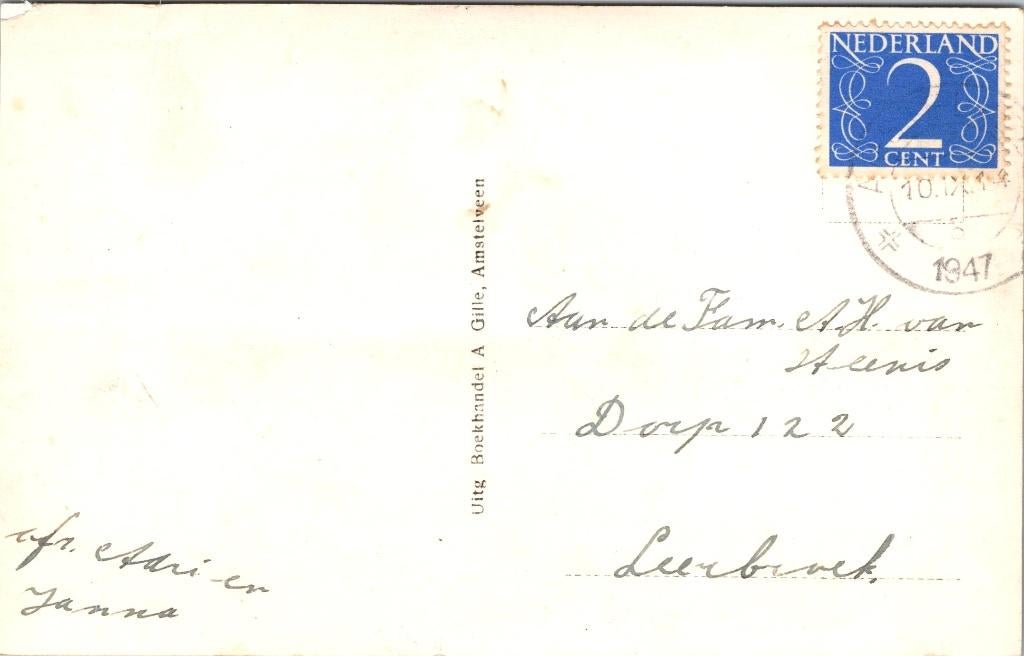 NEDERLAND
2
CENT
10.IX.14
1947
Uitg Boekhandel A Gille, Amstelveen
Aan de Fam. A.H. van
Heenis
Dorp 122
Leerbroek.
afz. Adri en
Janna